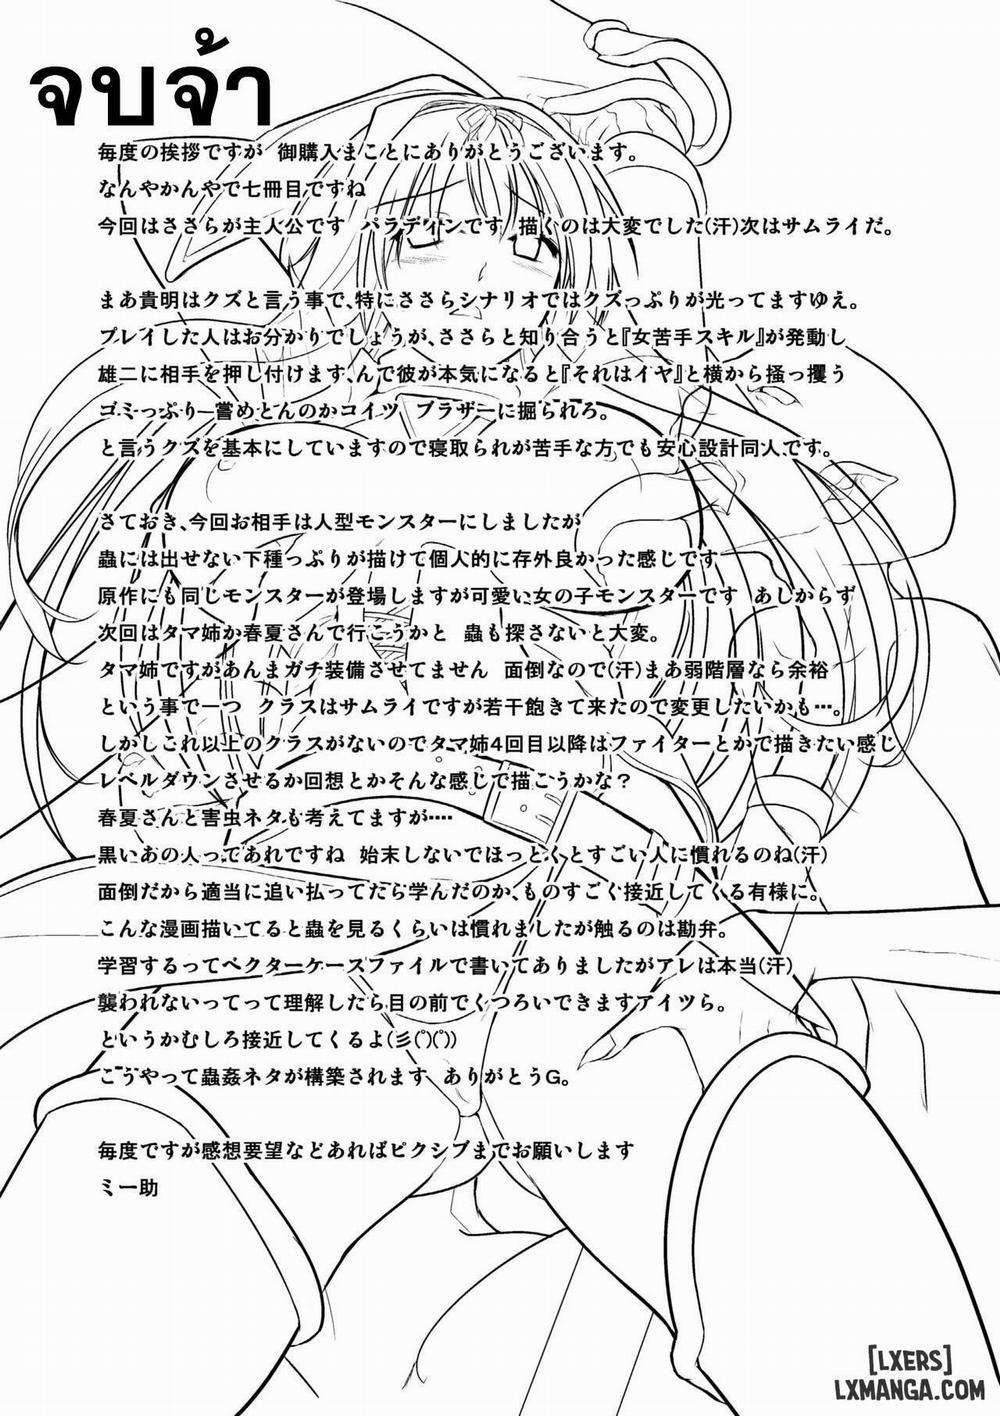 จบจ้า
毎度の挨拶ですが 御購入まことにありがとうございます。
なんやかんやで七冊目ですね
今回はささらが主人公です パラディンです 描くのは大変でした(汗)次はサムライだ。
まあ貴明はクズと言う事で、特にささらシナリオではクズっぷりが光ってますゆえ。
プレイした人はお分かりでしょうが、ささらと知り合うと『女苦手スキル』が発動し
雄二に相手を押し付けます、んで彼が本気になると『それはイヤ』と横から掻っ攫う
ゴミっぷり―嘗めとんのかコイツ ブラザーに掘られろ。
と言うクズを基本にしていますので寝取られが苦手な方でも安心設計同人です。
さておき、今回お相手は人型モンスターにしましたが
蟲には出せない下種っぷりが描けて個人的に存外良かった感じです
原作にも同じモンスターが登場しますが可愛い女の子モンスターです あしからず
次回はタマ姉か春夏さんで行こうかと 蟲も探さないと大変。
タマ姉ですがあんまガチ装備させてません 面倒なので(汗)まあ弱階層なら余裕
という事で一つ クラスはサムライですが若干飽きて来たので変更したいかも…。
しかしこれ以上のクラスがないのでタマ姉4回目以降はファイターとかで描きたい感じ
レベルダウンさせるか回想とかそんな感じで描こうかな？
春夏さんと害虫ネタも考えてますが‥‥
黒いあの人ってあれですね 始末しないでほっとくとすごい人に慣れるのね(汗)
面倒だから適当に追い払ってたら学んだのか、ものすごく接近してくる有様に。
こんな漫画描いてると蟲を見るくらいは慣れましたが触るのは勘弁。
学習するってベクターケースファイルで書いてありましたがアレは本当(汗)
襲われないってって理解したら目の前でくつろいできますアイツら。
というかむしろ接近してくるよ(彡(ﾟ)(ﾟ))
こうやって蟲姦ネタが構築されます ありがとうG。
毎度ですが感想要望などあればピクシブまでお願いします
ミー助
[LXERS]
LXMANGA.COM